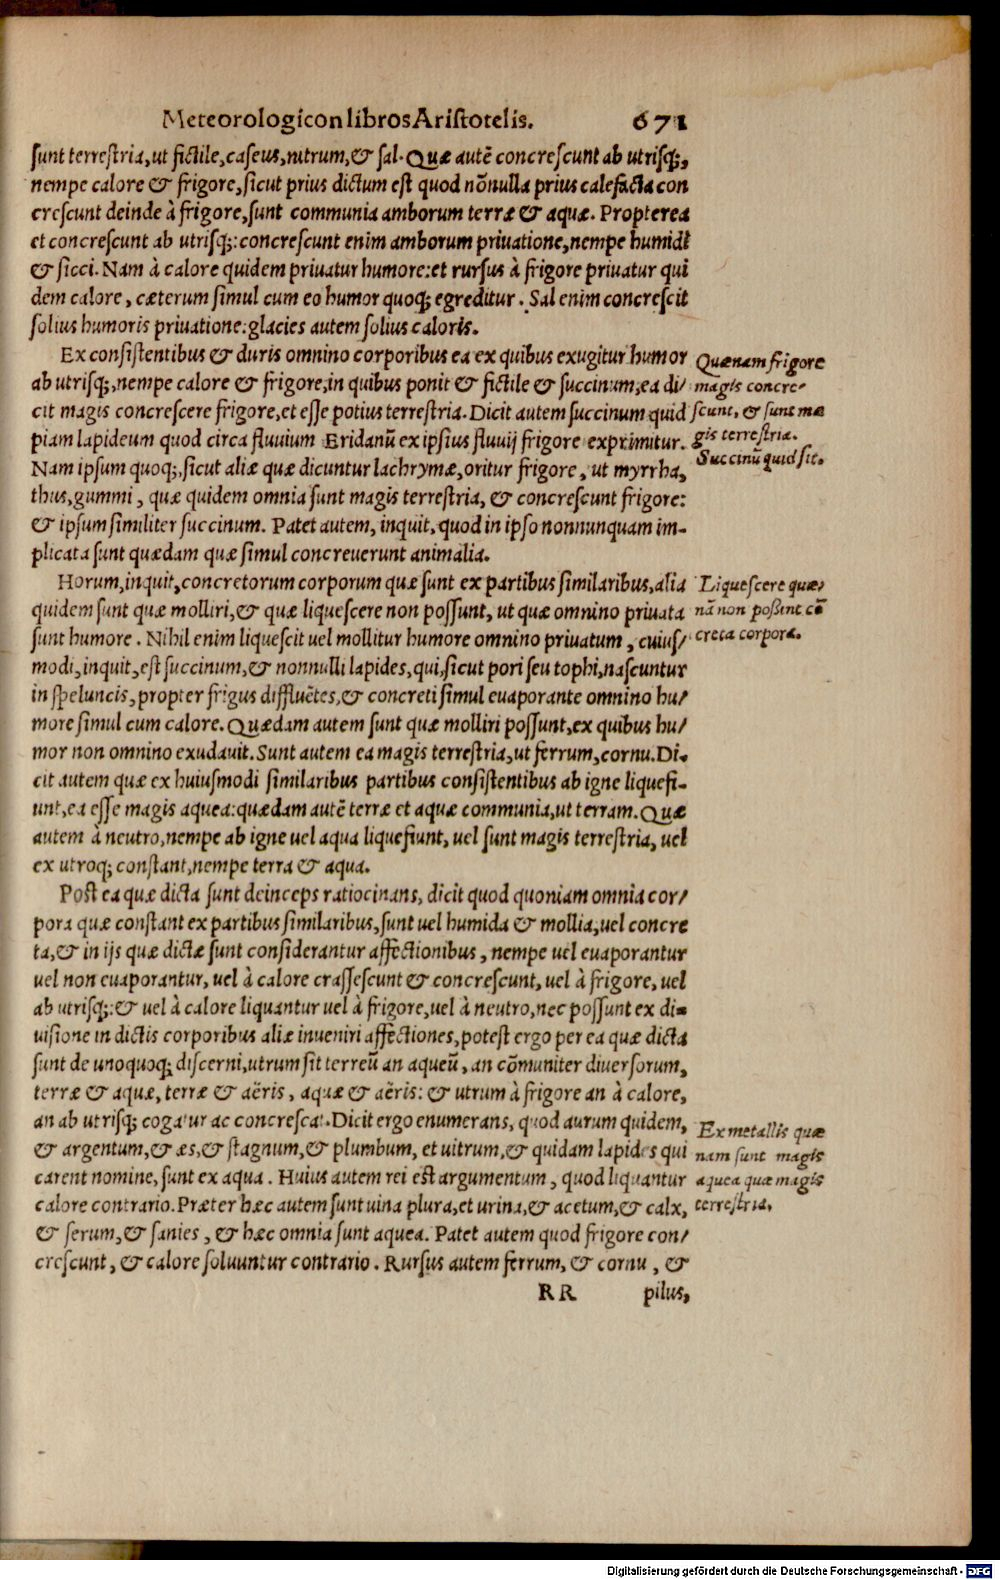 Meteorologicon libros Aristotelis. 671
sunt terrestria, ut fictile, caseus, nitrum, & sal. Quæ autē concrescunt ab utrisq;,
nempe calore & frigore, sicut prius dictum est quod nōnulla prius calefacta con
crescunt deinde à frigore, sunt communia amborum terræ & aquæ. Propterea
et concrescunt ab utrisq;: concrescunt enim amborum priuatione, nempe humidi
& sicci. Nam à calore quidem priuatur humore: et rursus à frigore priuatur qui
dem calore, cæterum simul cum eo humor quoq; egreditur. Sal enim concrescit
solius humoris priuatione: glacies autem solius caloris.
Ex consistentibus & duris omnino corporibus ea ex quibus exugitur humor
ab utrisq;, nempe calore & frigore, in quibus ponit & fictile & succinum, ea di/
cit magis concrescere frigore, et esse potius terrestria. Dicit autem succinum quid
piam lapideum quod circa fluuium Eridanū ex ipsius fluuij frigore exprimitur.
Nam ipsum quoq;, sicut aliæ quæ dicuntur lachrymæ, oritur frigore, ut myrrha,
thus, gummi, quæ quidem omnia sunt magis terrestria, & concrescunt frigore:
& ipsum similiter succinum. Patet autem, inquit, quod in ipso nonnunquam im-
plicata sunt quædam quæ simul concreuerunt animalia.
Quænam frigore
magis concre-
scunt, & sunt ma
gis terrestria.
Succinū quid sit.
Horum, inquit, concretorum corporum quæ sunt ex partibus similaribus, alia
quidem sunt quæ molliri, & quæ liquescere non possunt, ut quæ omnino priuata
sunt humore. Nihil enim liquescit uel mollitur humore omnino priuatum, cuius/
modi, inquit, est succinum, & nonnulli lapides, qui, sicut pori seu tophi, nascuntur
in speluncis, propter frigus diffluētes, & concreti simul euaporante omnino hu/
more simul cum calore. Quædam autem sunt quæ molliri possunt, ex quibus hu/
mor non omnino exudauit. Sunt autem ea magis terrestria, ut ferrum, cornu. Di-
cit autem quæ ex huiusmodi similaribus partibus consistentibus ab igne liquefi-
unt, ea esse magis aquea: quædam autē terræ et aquæ communia, ut terram. Quæ
autem à neutro, nempe ab igne uel aqua liquefiunt, uel sunt magis terrestria, uel
ex utroq; constant, nempe terra & aqua.
Liquescere quæ-
nā non possent cō
creta corpora.
Post ea quæ dicta sunt deinceps ratiocinans, dicit quod quoniam omnia cor/
pora quæ constant ex partibus similaribus, sunt uel humida & mollia, uel concre
ta, & in ijs quæ dictæ sunt considerantur affectionibus, nempe uel euaporantur
uel non euaporantur, uel à calore crassescunt & concrescunt, uel à frigore, uel
ab utrisq;: & uel à calore liquantur uel à frigore, uel à neutro, nec possunt ex di-
uisione in dictis corporibus aliæ inueniri affectiones, potest ergo per ea quæ dicta
sunt de unoquoq; discerni, utrum sit terreū an aqueū, an cōmuniter diuersorum,
terræ & aquæ, terræ & aëris, aquæ & aëris: & utrum à frigore an à calore,
an ab utrisq; cogatur ac concrescat. Dicit ergo enumerans, quod aurum quidem,
& argentum, & æs, & stagnum, & plumbum, et uitrum, & quidam lapides qui
carent nomine, sunt ex aqua. Huius autem rei est argumentum, quod liquantur
calore contrario. Præter hæc autem sunt uina plura, et urina, & acetum, & calx,
& serum, & sanies, & hæc omnia sunt aquea. Patet autem quod frigore con/
crescunt, & calore soluuntur contrario. Rursus autem ferrum, & cornu, &
Ex metallis quæ
nam sunt magis
aquea quæ magis
terrestria.
RR pilus,
Digitalisierung gefördert durch die Deutsche Forschungsgemeinschaft - DFG